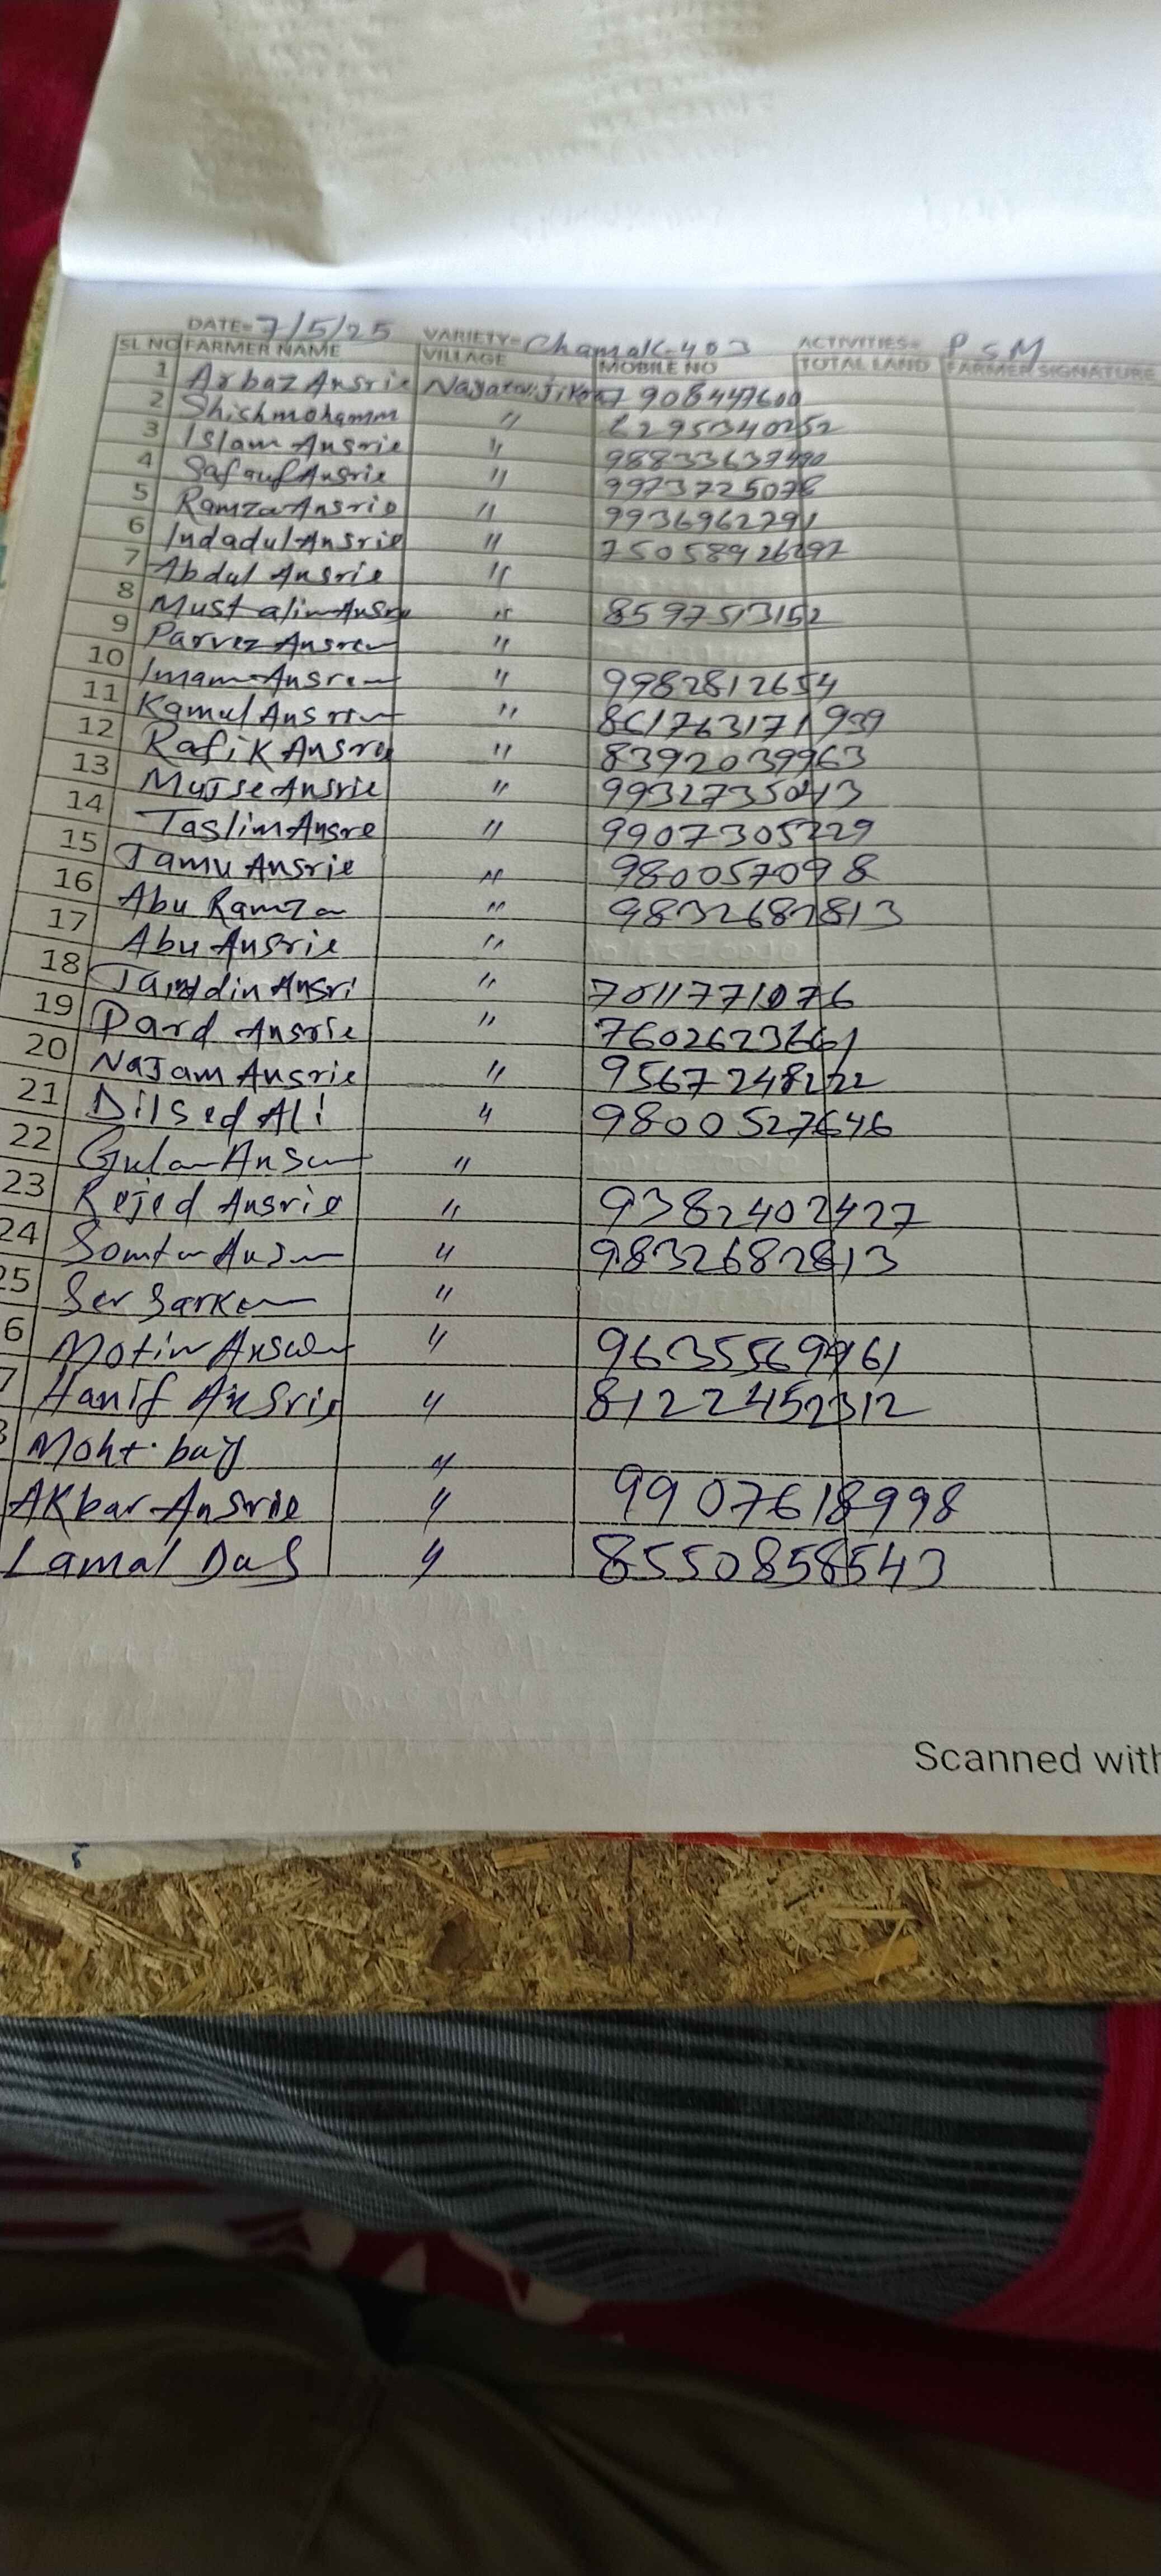 DATE= 7/5/25 VARIETY= Chamak-403 ACTIVITIES= PSM
SL NO FARMER NAME VILLAGE MOBILE NO TOTAL LAND FARMER SIGNATURE
1 Arbaz Ansrie 7908447600
2 Shishmohamm " 6295340252
3 Islam Ansrie "
4 Ansrie " 9973725078
5 Ramza Ansrie " 9936962791
6 Indadul Ansrie " 75058926292
7 Abdul Ansrie "
8 Mustalim Ansre " 8597513152
9 Parvez Ansrem "
10 Imam Ansrem " 9982812654
11 Kamul Ansrim " 861763171939
12 Rafik Ansre " 8392039963
13 Mujse Ansrie "
14 Taslim Ansre " 9907305229
15 Jamu Ansrie " 980057098
16 Abu Ramza "
17 Abu Ansrie "
18 Ansri 7011771076
19 Dard Ansrie "
20 Najam Ansrie "
21 Dilsed Ali " 9800527646
22 "
23 Rejed Ansrie " 9382402427
24 " 9832682813
25 Ser Sarkem "
6 Motin "
7 Hanif Ansrie " 81224522312
Moht. "
Akbar Ansrie " 9907618998
Lamal Das " 8550858543
Scanned with